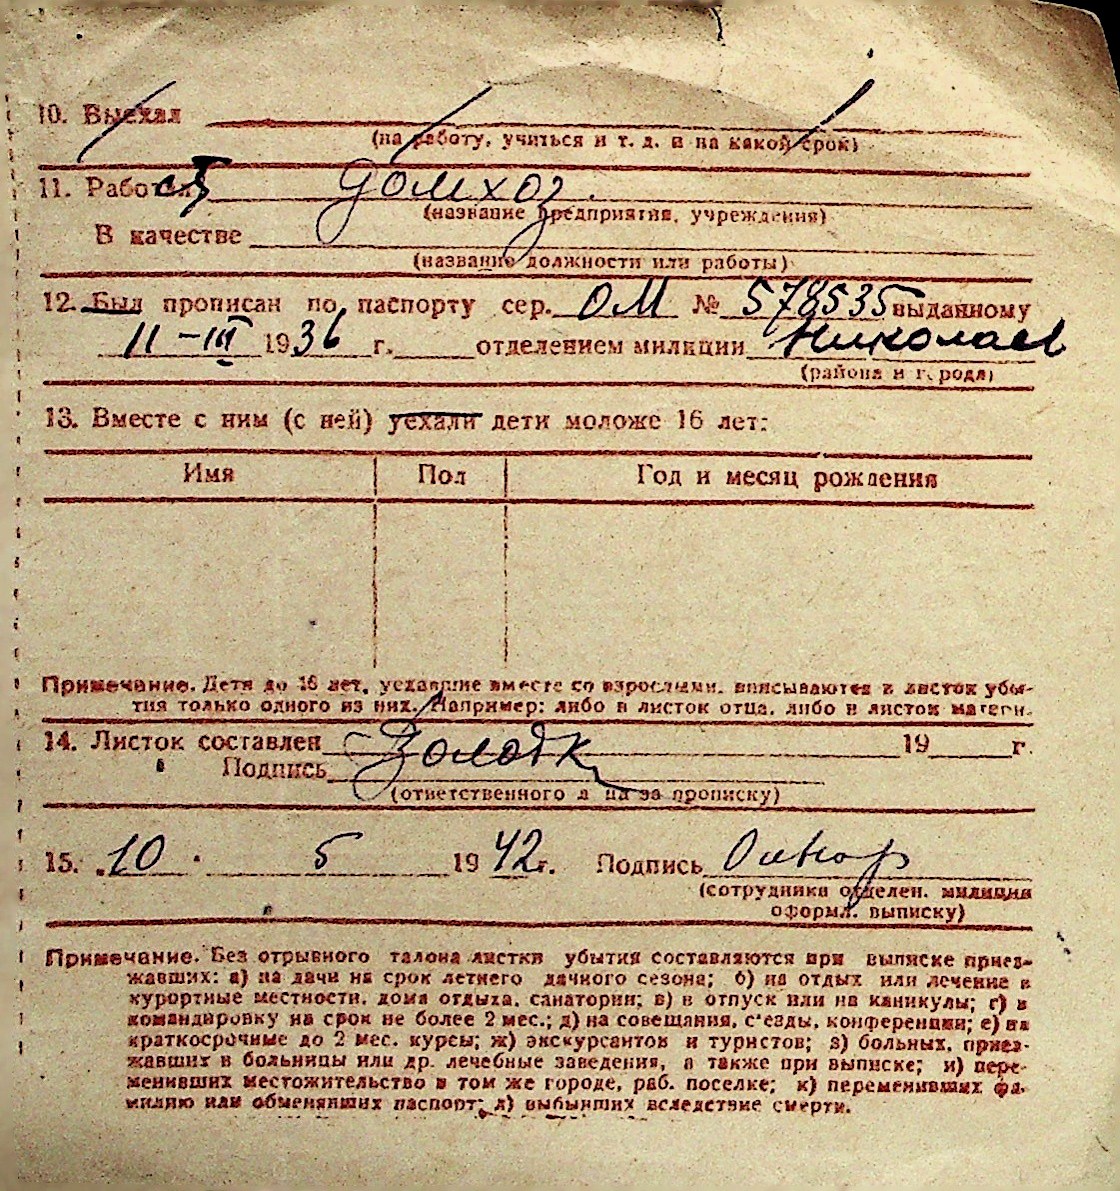 10. Выехал
(на работу, учиться и т. д. и на какой срок)
11. Работает домхоз.
(название предприятия, учреждения)
В качестве
(название должности или работы)
12. Был прописан по паспорту сер. ОМ № 578535 выданному
11-III 1936 г. отделением милиции Николаев
(района и города)
13. Вместе с ним (с ней) уехали дети моложе 16 лет:
Имя Пол Год и месяц рождения
Примечание. Дети до 16 лет, уехавшие вместе со взрослыми, вписываются в листок убы-
тия только одного из них. Например: либо в листок отца, либо в листок матери.
14. Листок составлен 19 г.
Подпись
(ответственного лица за прописку)
15. 10. 5 1942 г. Подпись
(сотрудника отделен. милиции
оформл. выписку)
Примечание. Без отрывного талона листки убытия составляются при выписке приез-
жавших: а) на дачи на срок летнего дачного сезона; б) на отдых или лечение в
курортные местности, дома отдыха, санатории; в) в отпуск или на каникулы; г) в
командировку на срок не более 2 мес.; д) на совещания, с'езды, конференции; е) на
краткосрочные до 2 мес. курсы; ж) экскурсантов и туристов; з) больных, приез-
жавших в больницы или др. лечебные заведения, а также при выписке; и) пере-
менивших местожительство в том же городе, раб. поселке; к) переменивших фа-
милию или обменявших паспорт; л) выбывших вследствие смерти.